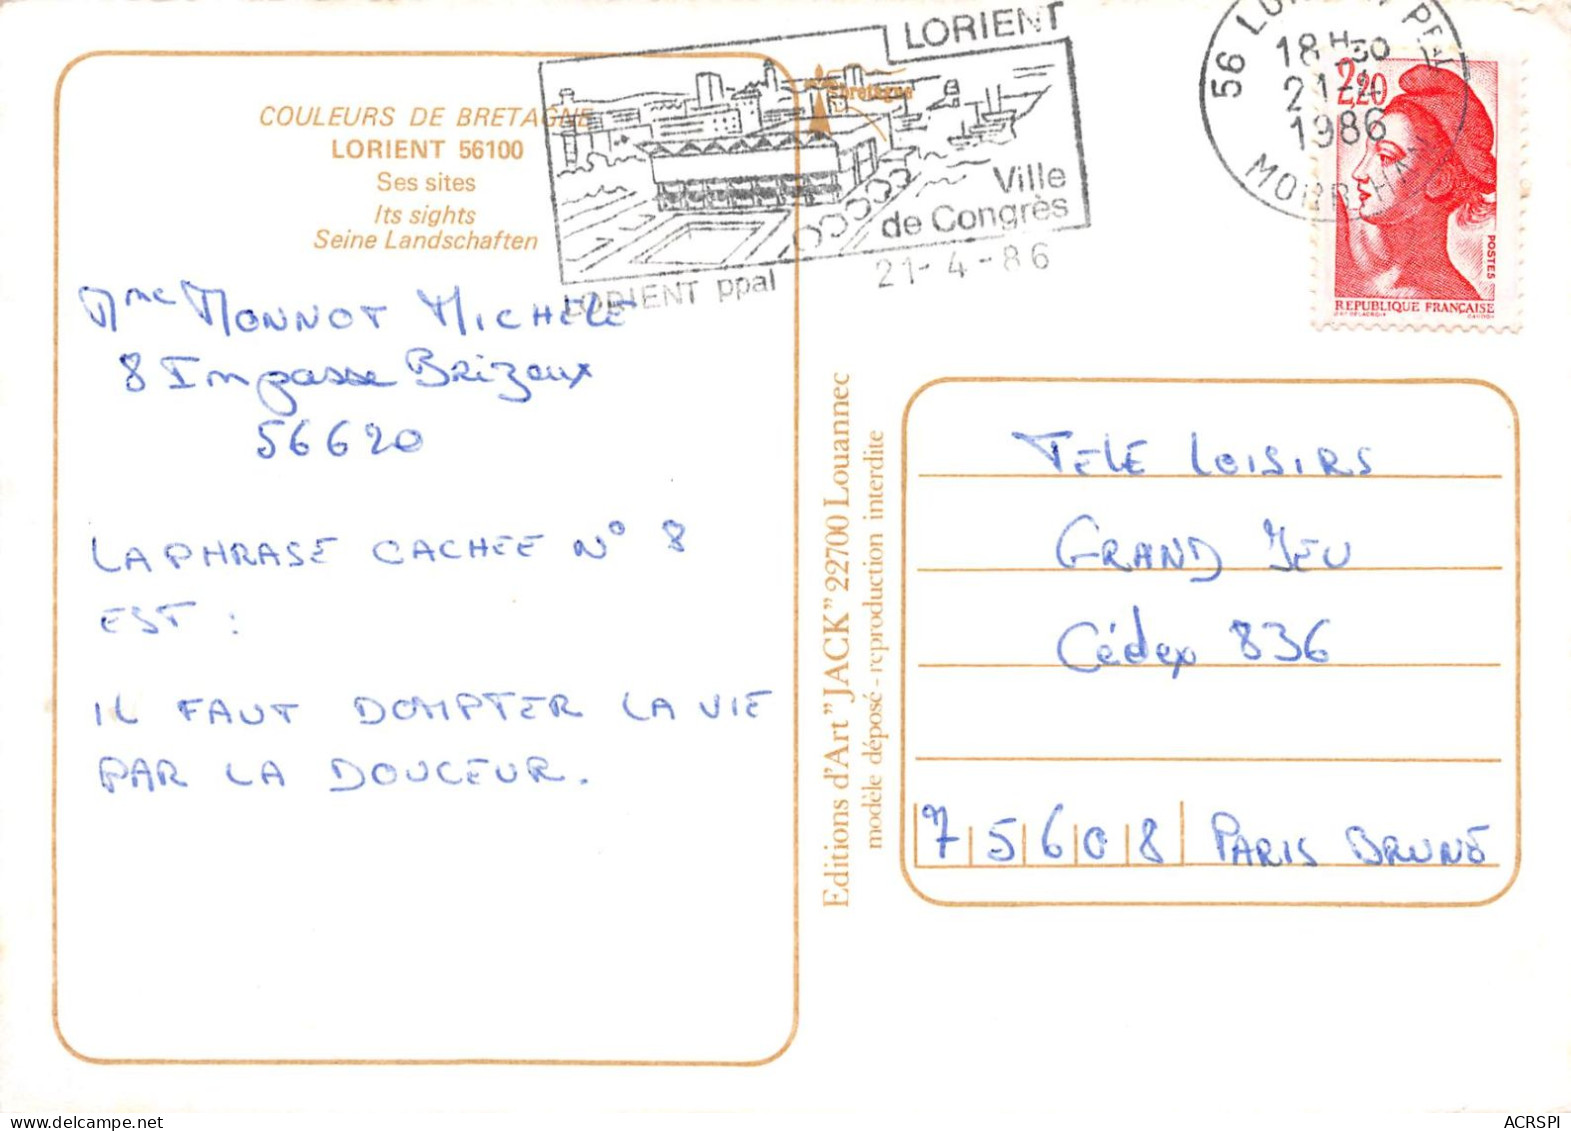 COULEURS DE BRETAGNE
LORIENT 56100
Ses sites
Its sights
Seine Landschaften
Mme MONNOT MICHELE
8 Impasse Brizeux
56620
LA PHRASE CACHEE N° 8
EST :
IL FAUT DOMPTER LA VIE
PAR LA DOUCEUR.
LORIENT
bretagne
Ville
de Congrès
LORIENT ppal
21-4-86
56 LORIENT PPAL
18H30
21-4
1986
MORBIHAN
2,20
POSTES
REPUBLIQUE FRANÇAISE
Editions d'Art "JACK" 22700 Louannec
modèle déposé - reproduction interdite
TELE LOISIRS
GRAND JEU
Cédex 836
75608 PARIS BRUNE
ACRSPI